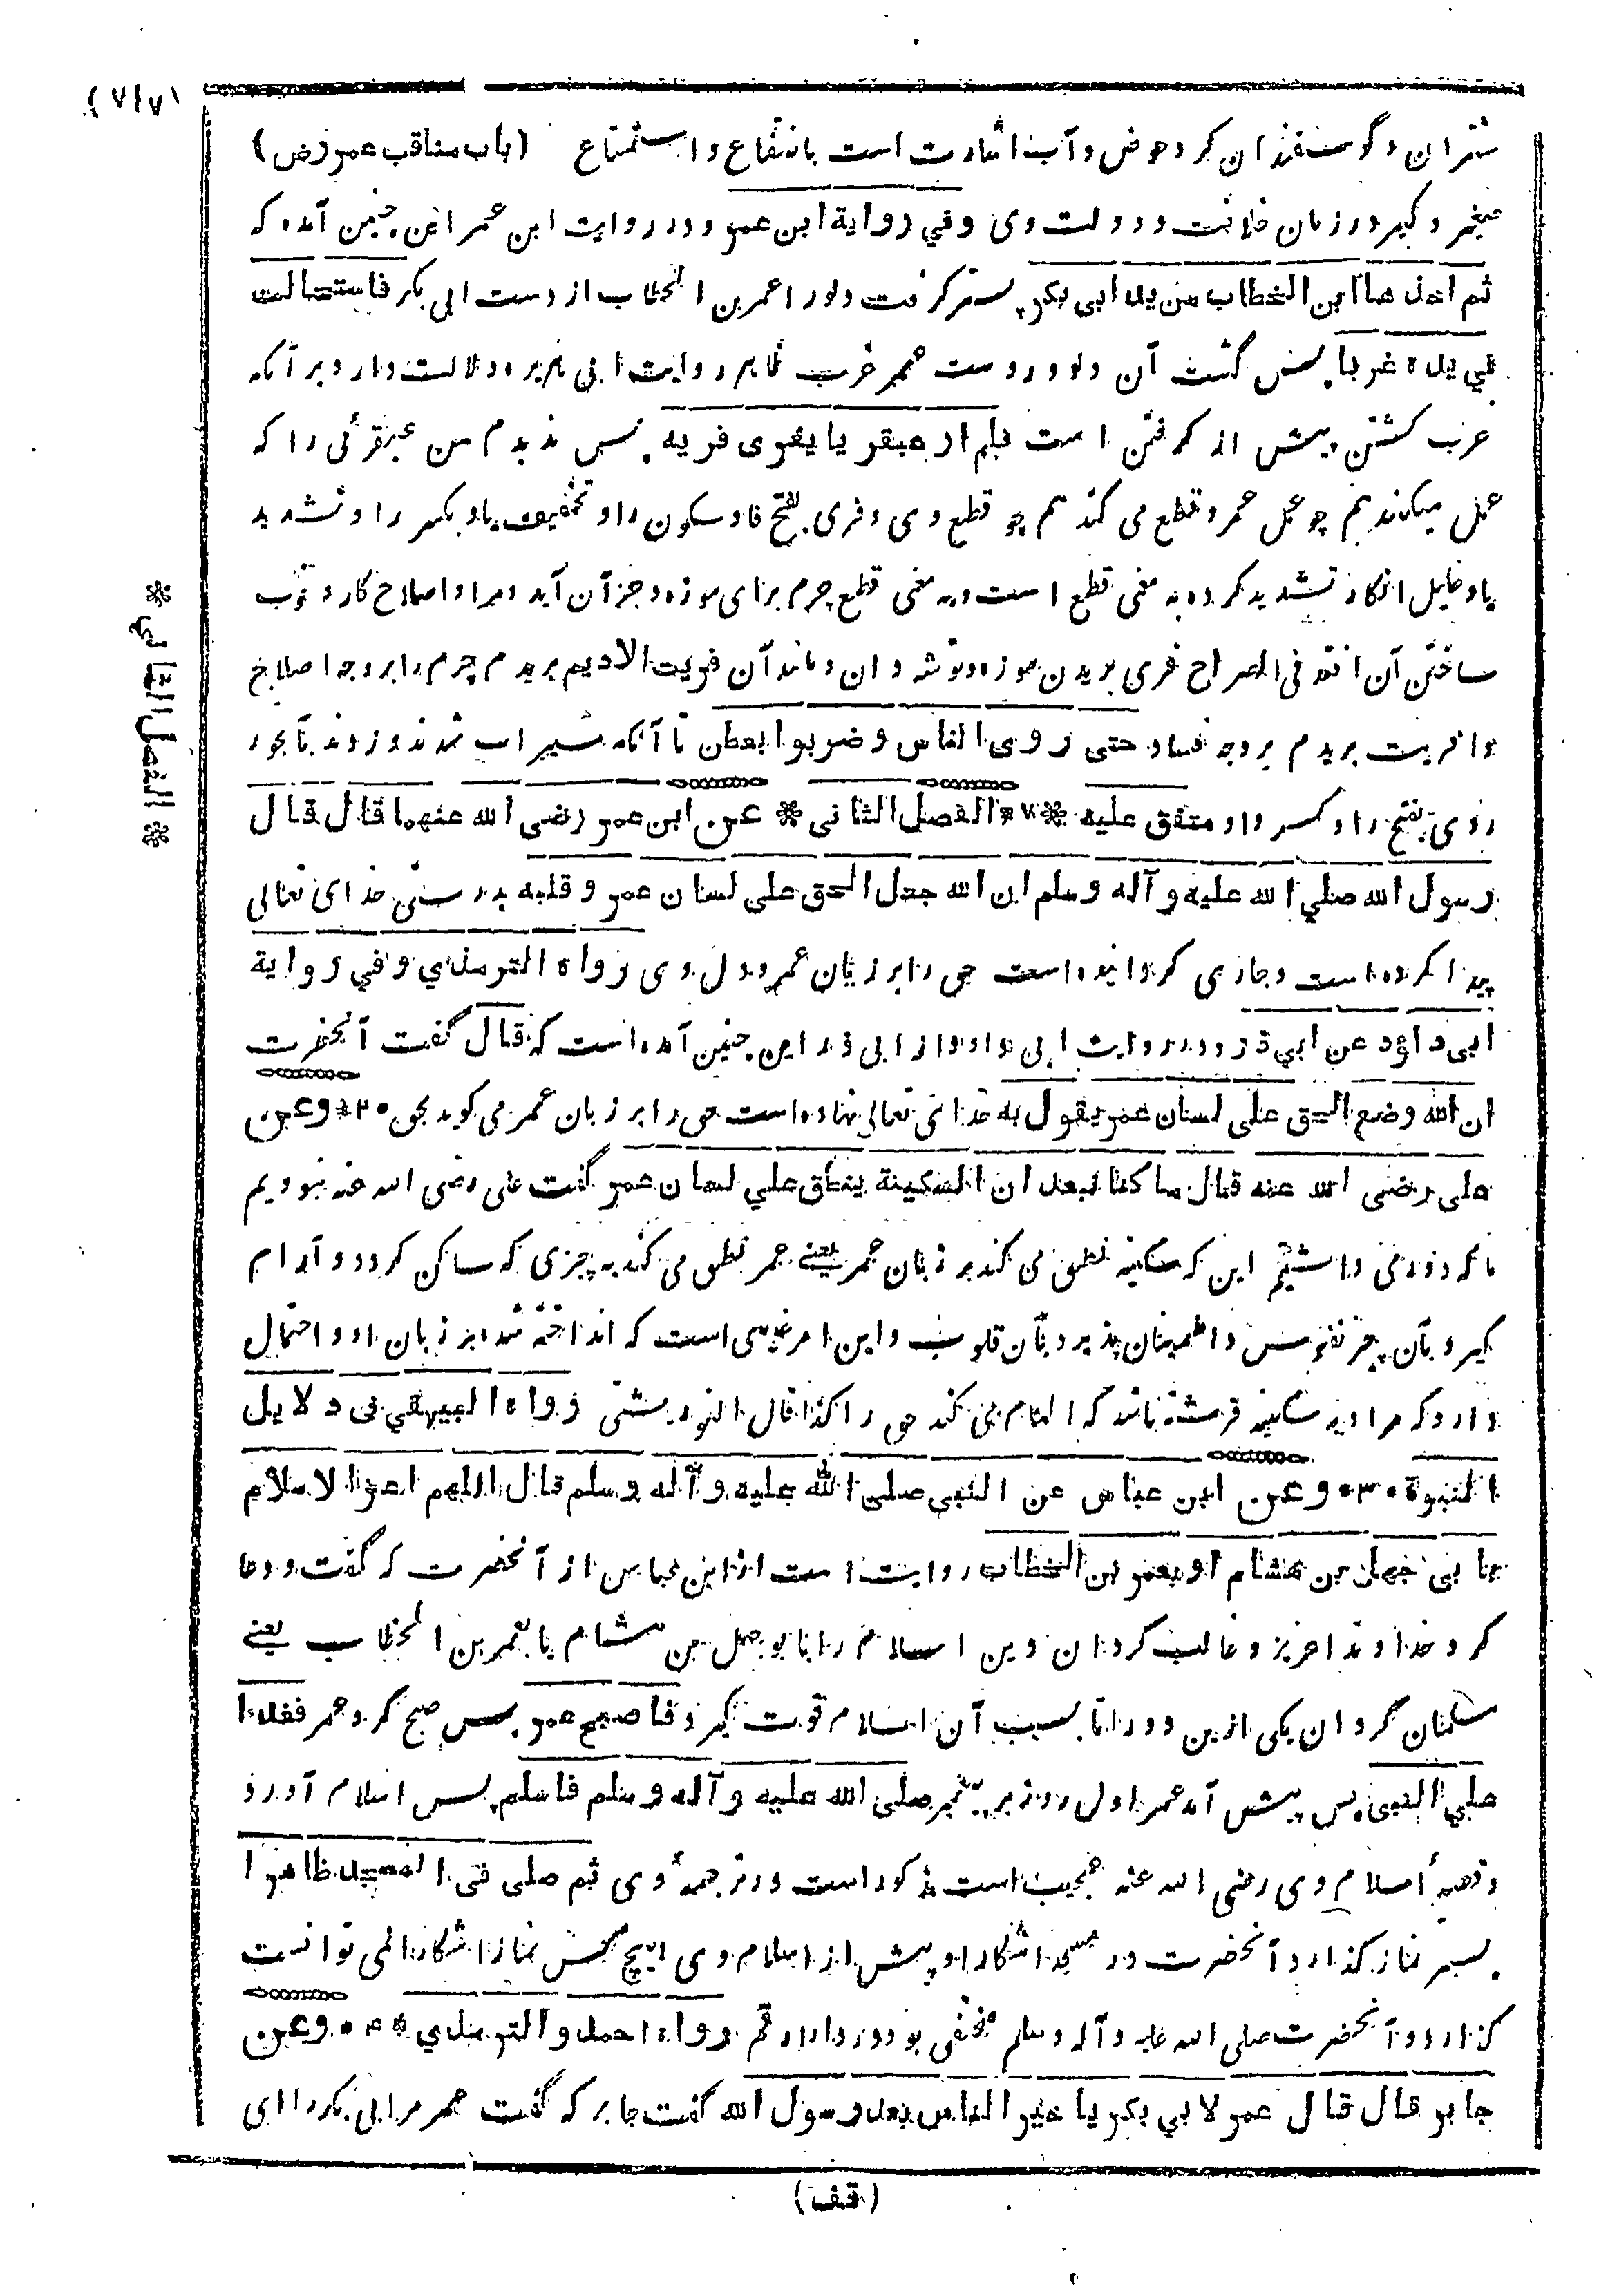 (۷۱۷)
شتران و گوسفندان گرد حوض و آب اشارت است بانتفاع و استمتاع (باب مناقب عمر رض)
صغیر و کبیر در زمان خلافت و دولت وی وفي رواية ابن عمر و در روایت ابن عمر این چنین آمده که
ثم اخذها ابن الخطاب من يد ابى بكر پستر گرفت دلو را عمر بن الخطاب از دست ابی بکر فاستحالت
في يده غربا پس گشت آن دلو در دست عمر غرب ظاهر روایت ابی هریره دلالت دارد بر آنکه
غرب گشتن پیش از گرفتن است فلم ار عبقريا يفرى فريه پس ندیدم من عبقرئی را که
عمل میکند هم چو عمل عمر و قطع می کند هم چو قطع وی و فری بفتح فا و سکون را و تخفیف یا و بکسر را و تشدید
یا و خلیل انکار تشدید کرده به معنی قطع است و به معنی قطع چرم برای موزه و جز آن آید و مراد اصلاح کار و خوب
ساختن آن افتد فی الصراح فری بریدن موزه و توشه دان و مانند آن فريت الاديم بریدم چرم را بر وجه اصلاح
و افریت بریدم بر وجه فساد حتى روى الناس و ضربوا بعطن تا آنکه سیراب شدند و زدند تا بخورد
روی بفتح را و کسر واو متفق عليه * * الفصل الثانى * عن ابن عمر رضى الله عنهما قال قال
رسول الله صلي الله عليه و آله و سلم ان الله جعل الحق على لسان عمر و قلبه بدرستی خدای تعالی
پیدا کرده است و جاری گردانیده است حق را بر زبان عمر و دل وی رواه الترمذي و في رواية
ابى داؤد عن ابي ذر و در روایت ابی داود از ابی ذر این چنین آمده است که قال گفت آنحضرت
ان الله وضع الحق على لسان عمر يقول به خدای تعالی نهاده است حق را بر زبان عمر می گوید بحق * ۲ * وعن
على رضى الله عنه قال ما كنا نبعد ان السكينة ينطق علي لسان عمر گفت علی رضی الله عنه نبودیم
ما که دور می داشتیم این که سکینه نطق می کند بر زبان عمر یعنے عمر نطق می کند به چیزی که ساکن گردد و آرام
گیرد بآن چیز نفوس و اطمینان پذیرد بآن قلوب و این امر غیبی است که انداخته شده بر زبان او و احتمال
دارد که مراد به سکینه فرشته باشد که الهام می کند حق را کذا قال التوربشتی رواه البيهقي فى دلايل
النبوة * ۳ * وعن ابن عباس عن النبى صلى الله عليه و آله و سلم قال اللهم اعز الاسلام
بابى جهل بن هشام او بعمر بن الخطاب روایت است از ابن عباس از آنحضرت که گفت و دعا
کرد خداوندا عزیز و غالب گردان دین اسلام را بابو جهل بن هشام یا بعمر بن الخطاب یعنے
مسلمان گردان یکی ازین دو را تا بسبب آن اسلام قوت گیرد فاصبح عمر پس صبح کرد عمر فغدا
علي النبى پس پیش آمد عمر اول روز بر پیغمبر صلى الله عليه و آله و سلم فاسلم پس اسلام آورد
و قصهٔ اسلام وی رضی الله عنه عجیب است مذکور است در ترجمهٔ وی ثم صلى فى المسجد ظاهرا
پستر نماز گذارد آنحضرت در مسجد اشکارا و پیش از اسلام وی هیچ کس نماز اشکارا نمی توانست
گزارد و آنحضرت صلی الله علیه و آله و سلم مخفی بود در دار ارقم رواه احمد و الترمذي * ۴ * وعن
جابر قال قال عمر لابي بكر يا خير الناس بعد رسول الله گفت جابر که گفت عمر مر ابی بکر را ای
* الفصل الثاني *
(قف)